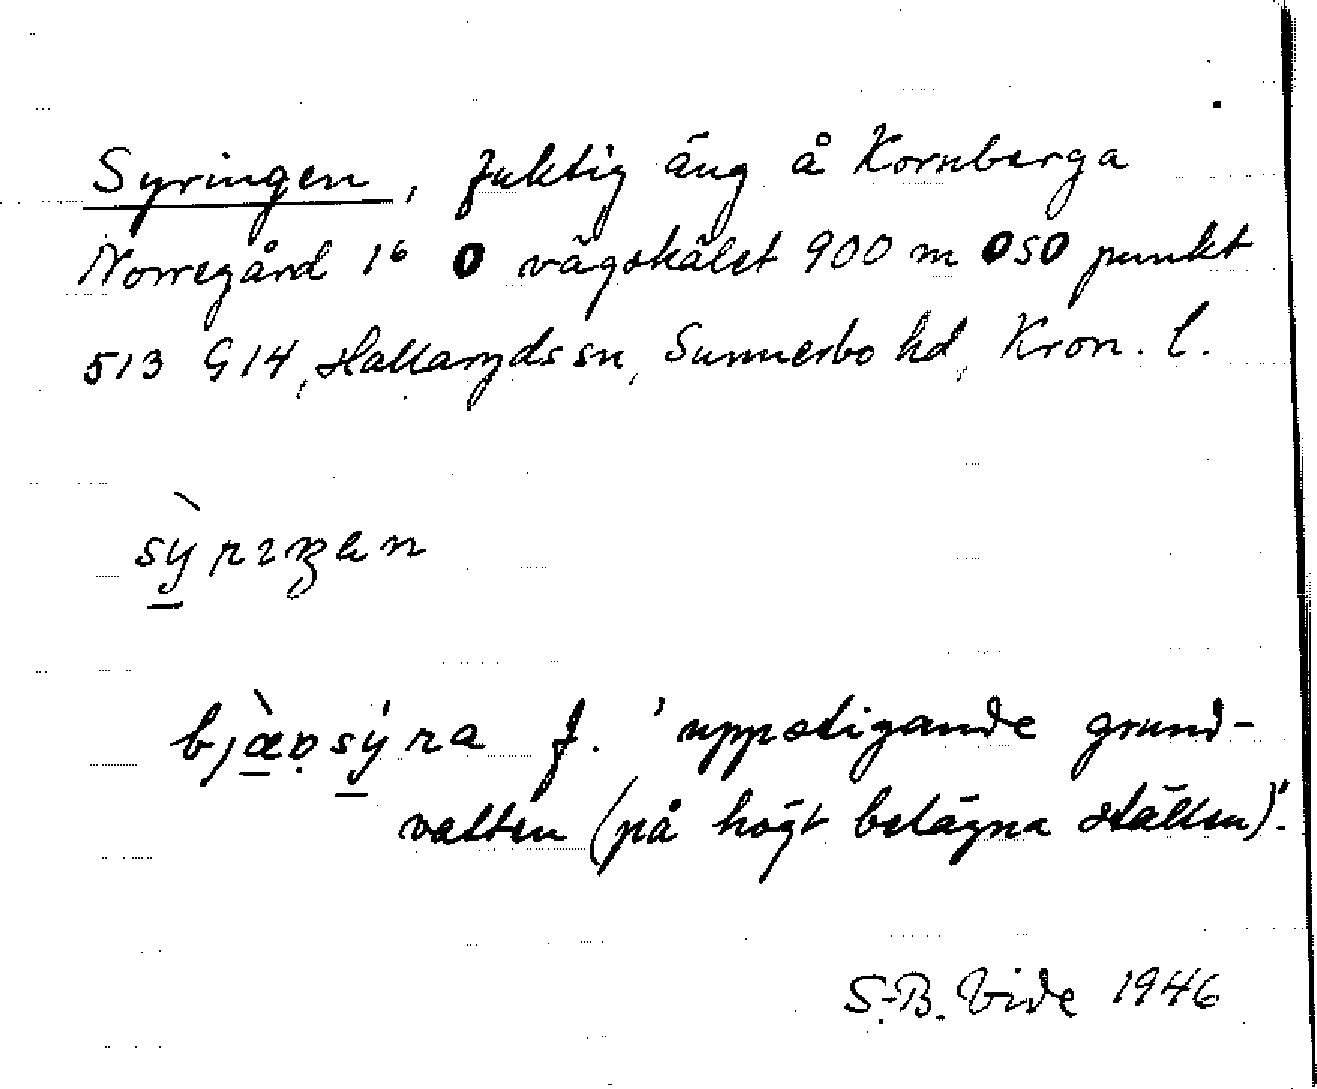 Syringen, fuktig äng å Kornberga
Norregård 1⁶ O vägskälet 900 m OSO punkt
513 G14, Hallaryds sn, Sunnerbo hd, Kron. l.
sỳrıŋen
bjæ̀rsýra f. 'uppstigande grund-
vatten (på högt belägna ställen)'.
S.-B. Vide 1946